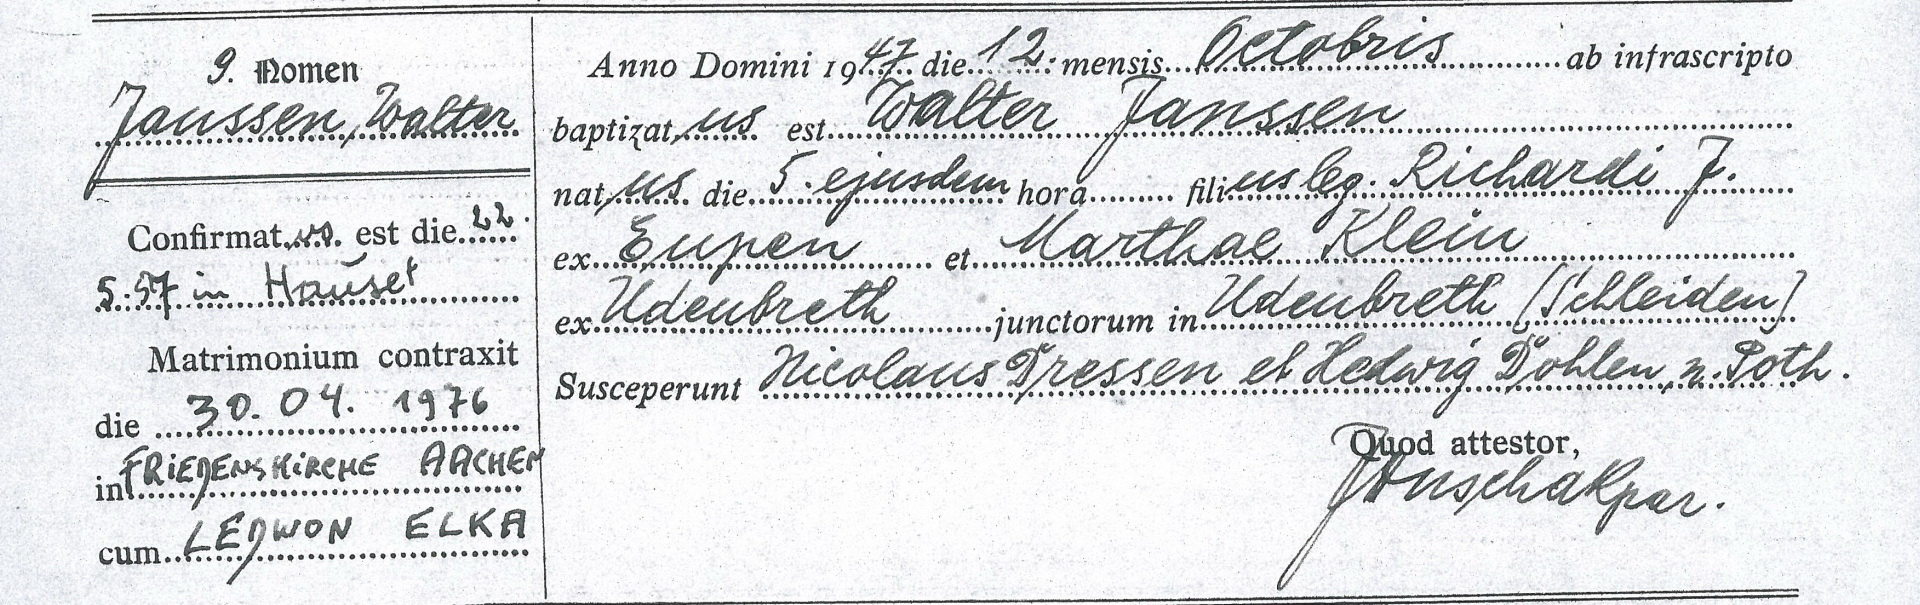 9. Nomen
Janssen, Walter
Confirmat us. est die 22.
5.57 in Hauset
Matrimonium contraxit
die 30. 04. 1976
in FRIEDENSKIRCHE AACHEN
cum LEDWON ELKA
Anno Domini 1947 die 12. mensis Octobris ab infrascripto
baptizat us est Walter Janssen
nat us die 5. ejusdem hora filius leg. Richardi J.
ex Eupen et Marthae Klein
ex Udenbreth junctorum in Udenbreth (Schleiden)
Susceperunt Nicolaus Dressen et Hedwig Dohlen, n. Poth.
Quod attestor,